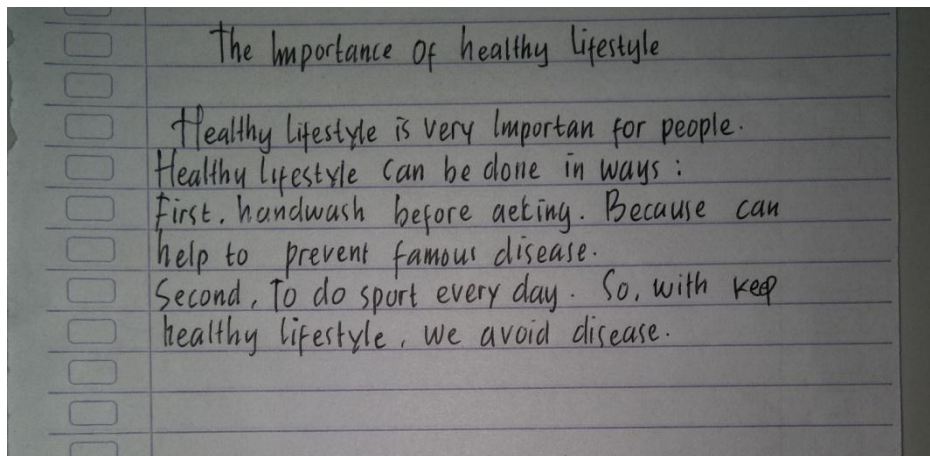 The Importance Of healthy lifestyle
Healthy lifestyle is very Importan for people.
Healthy lifestyle can be done in ways :
First, handwash before aeting. Because can
help to prevent famous disease.
Second, To do sport every day. So, with keep
healthy lifestyle, we avoid disease.